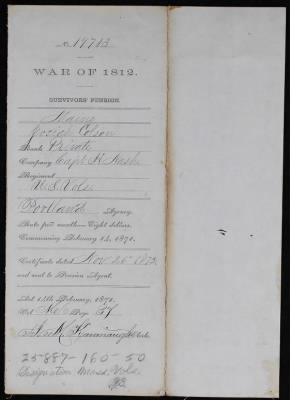 No 19713
WAR OF 1812.
SURVIVORS' PENSION.
Maine
Josiah Colson
Rank Private
Company Capt H. Nash
Regiment
U.S. Vols
Portland Agency.
Rate per month Eight dollars,
Commencing February 14, 1871.
Certificate dated Nov 26" 1872
and sent to Pension Agent.
Act 14th February, 1871.
Vol. Page 37
Clerk.
25887-160-50
Designation Mass. Vols.